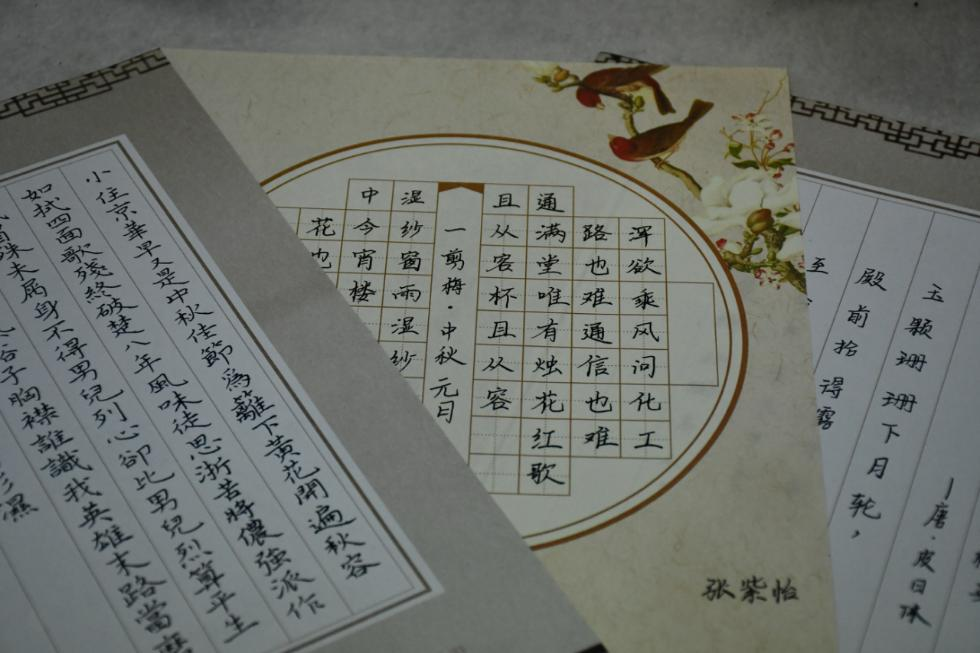 小住京華早又是中秋佳節為籬下黃花開遍秋容
如拭四面歌殘終破楚八年風味徒思浙苦將儂強派作
殊未屑身不得男兒列心卻比男兒烈算平生
俗子胸襟誰識我英雄末路當磨
濕
浑欲乘风问化工
路也难通信也难
通满堂唯有烛花红歌
且从容杯且从容
一剪梅·中秋 元月
湿纱窗雨湿纱
中今宵楼
花也
张紫怡
—唐·皮日休
玉颗珊珊下月轮，
殿前拾得露
至